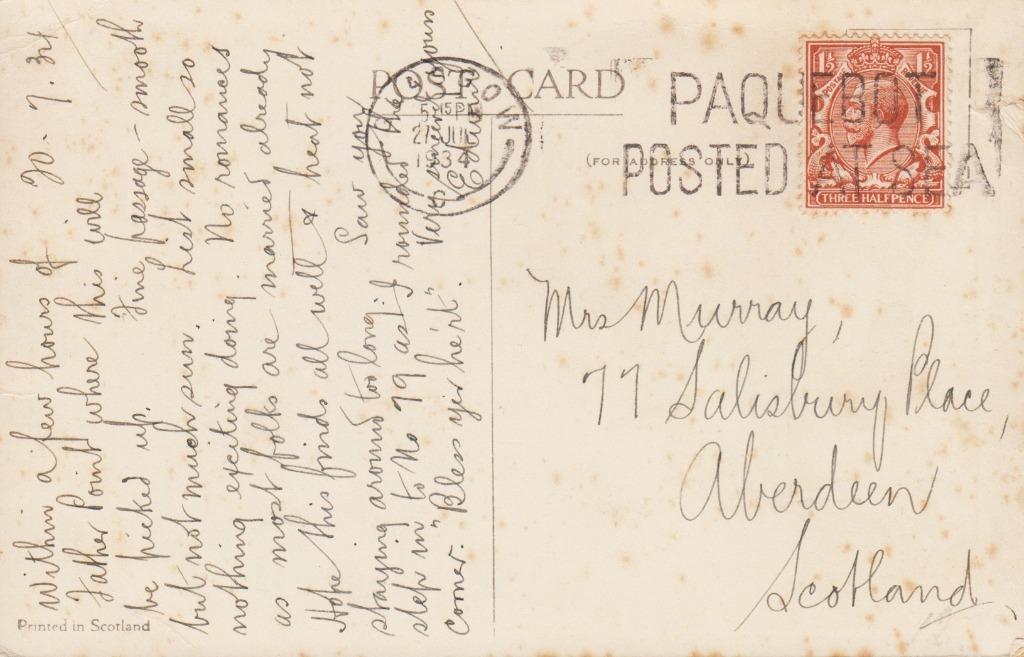 POST CARD
(FOR ADDRESS ONLY)
GLASGOW
5.15PM
27 JUL
1934
PAQUEBOT
POSTED AT SEA
1½ 1½
THREE HALFPENCE
20.7.34
Within a few hours of
Father Point where this will
be picked up. Fine passage - smooth
but not much sun. List small so
nothing exciting doing. No romances
as most folks are married already
Hope this finds all well & heat not
staying around too long. Saw you
step in to No 79 as I rounded the
corner. "Bless yir he'rt". Very sincerely yours
Mrs Murray,
77 Salisbury Place,
Aberdeen
Scotland
Printed in Scotland